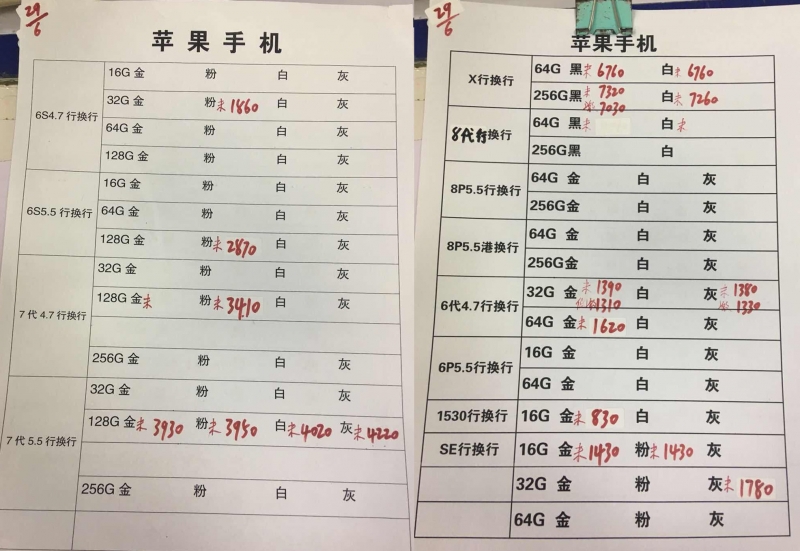 29/6
苹果手机
6S4.7行换行
16G 金 粉 白 灰
32G 金 粉未1860 白 灰
64G 金 粉 白 灰
128G 金 粉 白 灰
6S5.5 行换行
16G 金 粉 白 灰
64G 金 粉 白 灰
128G 金 粉未2870 白 灰
7 代 4.7 行换行
32G 金 粉 白 灰
128G 金未 粉未3410 白 灰
256G 金 粉 白 灰
7 代 5.5 行换行
32G 金 粉 白 灰
128G 金未3930 粉未3950 白未4020 灰未4220
256G 金 粉 白 灰
29/6
苹果手机
X行换行
64G 黑未6760 白未6760
256G黑未7320 白未7260
7030
8代行换行
64G 黑未 白未
256G黑 白
8P5.5行换行
64G 金 白 灰
256G金 白 灰
8P5.5港换行
64G 金 白 灰
256G金 白 灰
6代4.7行换行
32G 金未1390 白 灰未1380
1310 1330
64G 金未1620 白 灰
6P5.5行换行
16G 金 白 灰
64G 金 白 灰
1530行换行
16G 金未830 白 灰
SE行换行
16G 金未1430 粉未1430 灰
32G 金 粉 灰未1780
64G 金 粉 灰